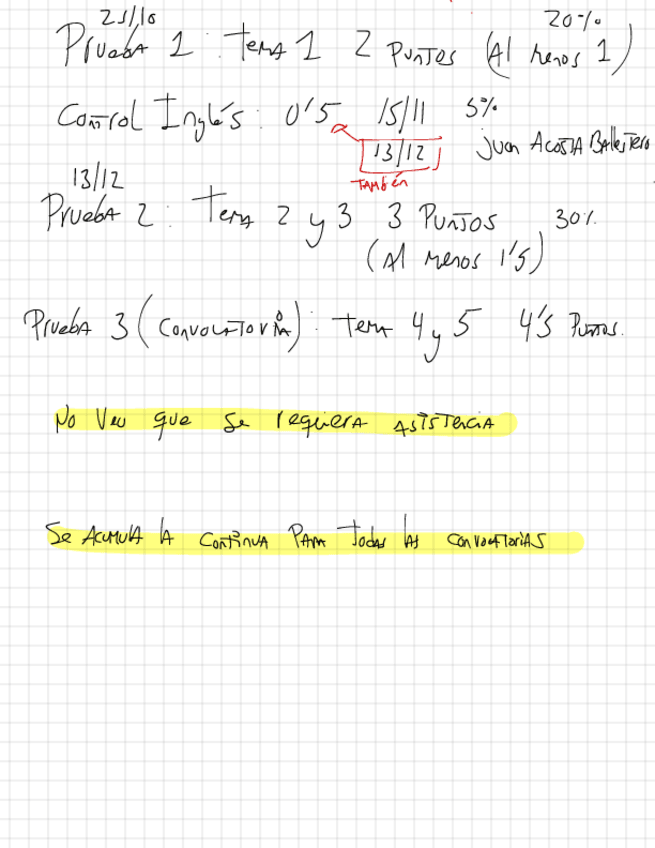 25/10 20%
Prueba 1: Tema 1 2 Puntos (Al menos 1)
Control Inglés: 0'5 15/11 5%
13/12 Juan Acosta Ballestero
también
13/12
Prueba 2: Tema 2 y 3 3 Puntos 30%
(Al menos 1'5)
Prueba 3 (Convocatoria): Tema 4 y 5 4'5 Puntos.
No veo que se requiera asistencia
Se acumula la continua para todas las convocatorias